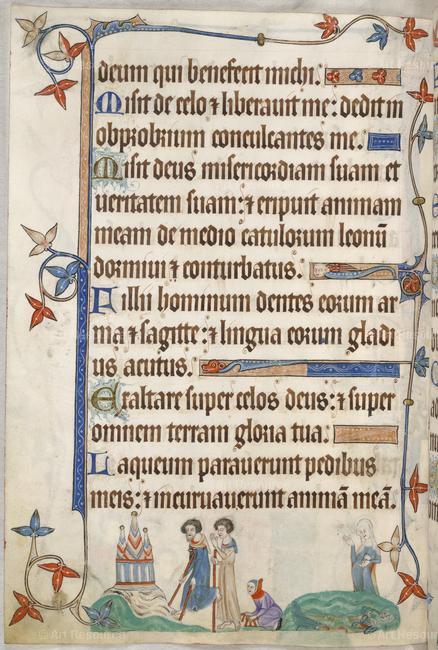 deum qui benefecit michi.
Misit de celo ⁊ liberauit me: dedit in
obprobrium conculcantes me.
Misit deus misericordiam suam et
ueritatem suam: ⁊ eripuit animam
meam de medio catulorum leonū
dormiui ⁊ conturbatus.
Filii hominum dentes eorum ar
ma ⁊ sagitte: ⁊ lingua eorum gladi
us acutus.
Exaltare super celos deus: ⁊ super
omnem terram gloria tua.
Laqueum parauerunt pedibus
meis: ⁊ incuruauerunt animā meā.